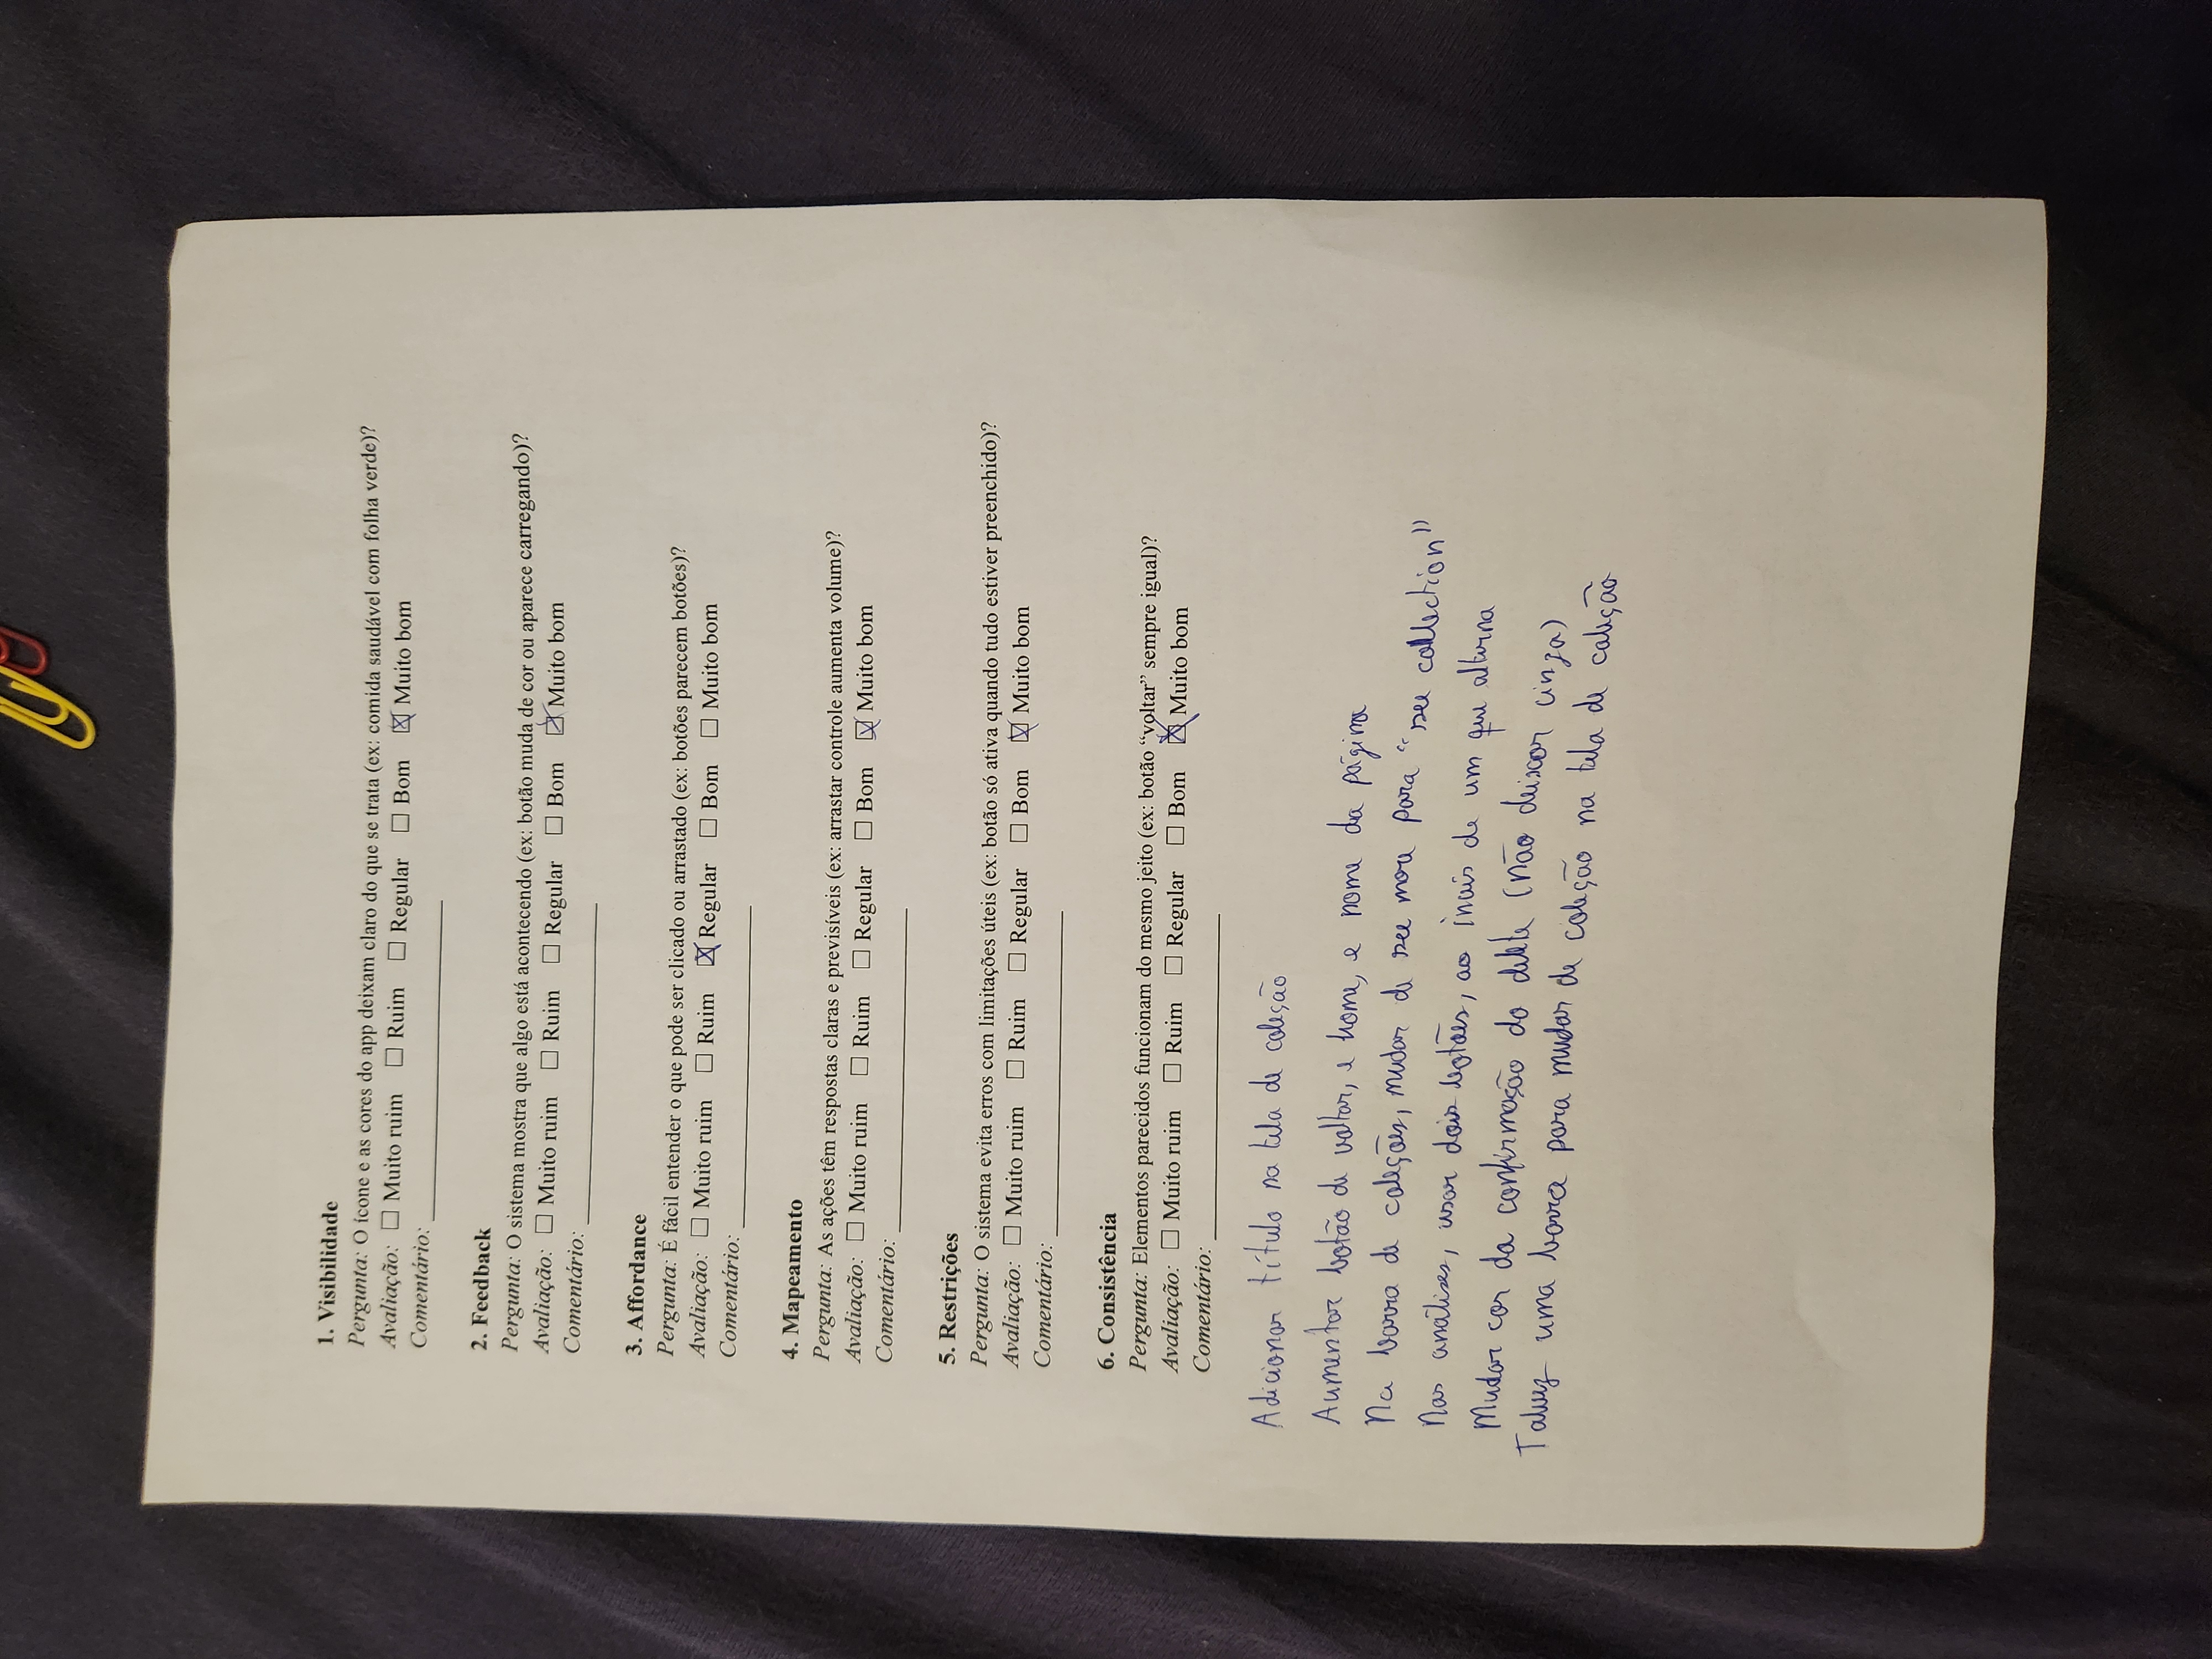 1. Visibilidade
Pergunta: O ícone e as cores do app deixam claro do que se trata (ex: comida saudável com folha verde)?
Avaliação: ☐ Muito ruim ☐ Ruim ☐ Regular ☐ Bom ☒ Muito bom
Comentário: ____________________
2. Feedback
Pergunta: O sistema mostra que algo está acontecendo (ex: botão muda de cor ou aparece carregando)?
Avaliação: ☐ Muito ruim ☐ Ruim ☐ Regular ☐ Bom ☒ Muito bom
Comentário: ____________________
3. Affordance
Pergunta: É fácil entender o que pode ser clicado ou arrastado (ex: botões parecem botões)?
Avaliação: ☐ Muito ruim ☐ Ruim ☒ Regular ☐ Bom ☐ Muito bom
Comentário: ____________________
4. Mapeamento
Pergunta: As ações têm respostas claras e previsíveis (ex: arrastar controle aumenta volume)?
Avaliação: ☐ Muito ruim ☐ Ruim ☐ Regular ☐ Bom ☒ Muito bom
Comentário: ____________________
5. Restrições
Pergunta: O sistema evita erros com limitações úteis (ex: botão só ativa quando tudo estiver preenchido)?
Avaliação: ☐ Muito ruim ☐ Ruim ☐ Regular ☐ Bom ☒ Muito bom
Comentário: ____________________
6. Consistência
Pergunta: Elementos parecidos funcionam do mesmo jeito (ex: botão “voltar” sempre igual)?
Avaliação: ☐ Muito ruim ☐ Ruim ☐ Regular ☐ Bom ☒ Muito bom
Comentário: ____________________
Adicionar título na tela de coleção
Aumentar botão de voltar, e home, e nome da página
Na barra de coleções, mudar de see more para “see collection”
Nas análises, usar dois botões, ao invés de um que alterna
Mudar cor da confirmação do delete (não deixar cinza)
Talvez uma barra para mudar de coleção na tela de coleção